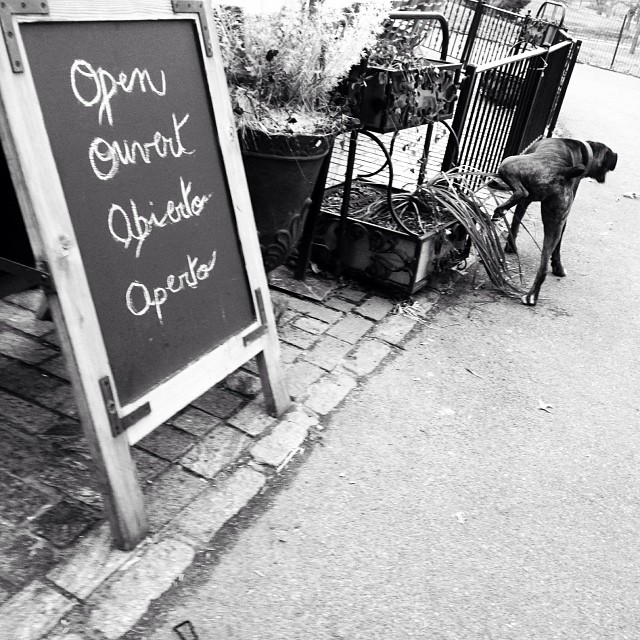 Open
Ouvert
Abierto
Aperto